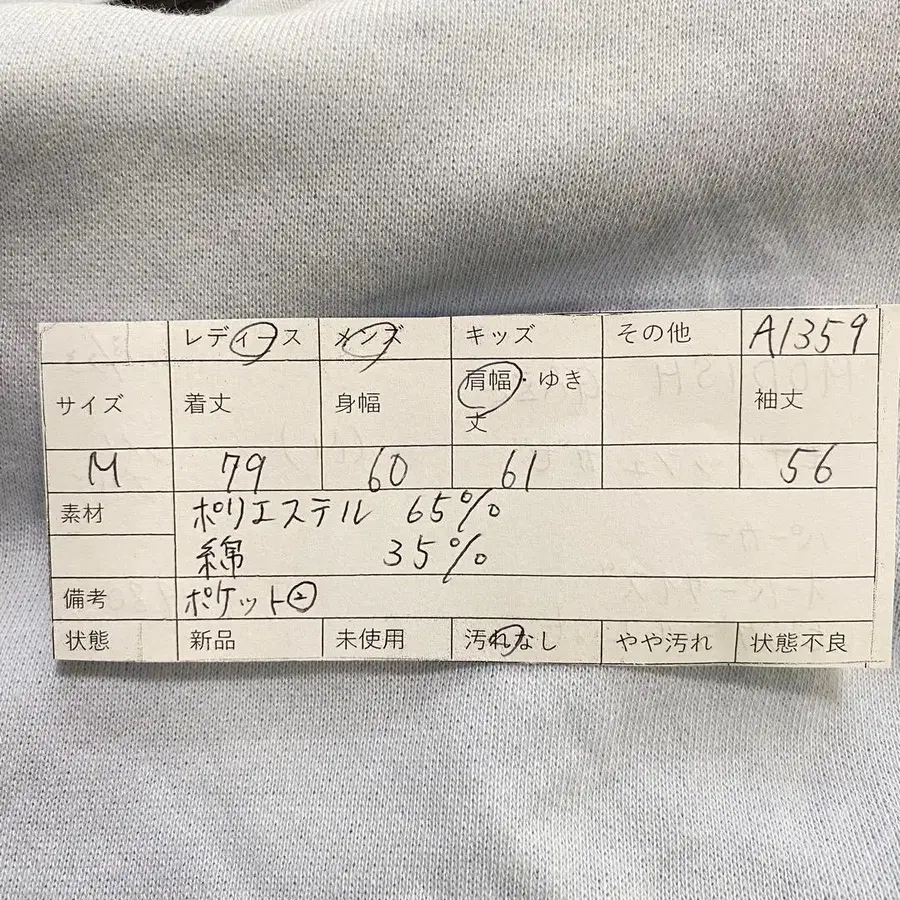 レディース メンズ キッズ その他 A1359
サイズ 着丈 身幅 肩幅・ゆき丈 袖丈
M 79 60 61 56
素材 ポリエステル 65%
綿 35%
備考 ポケット②
状態 新品 未使用 汚れなし やや汚れ 状態不良